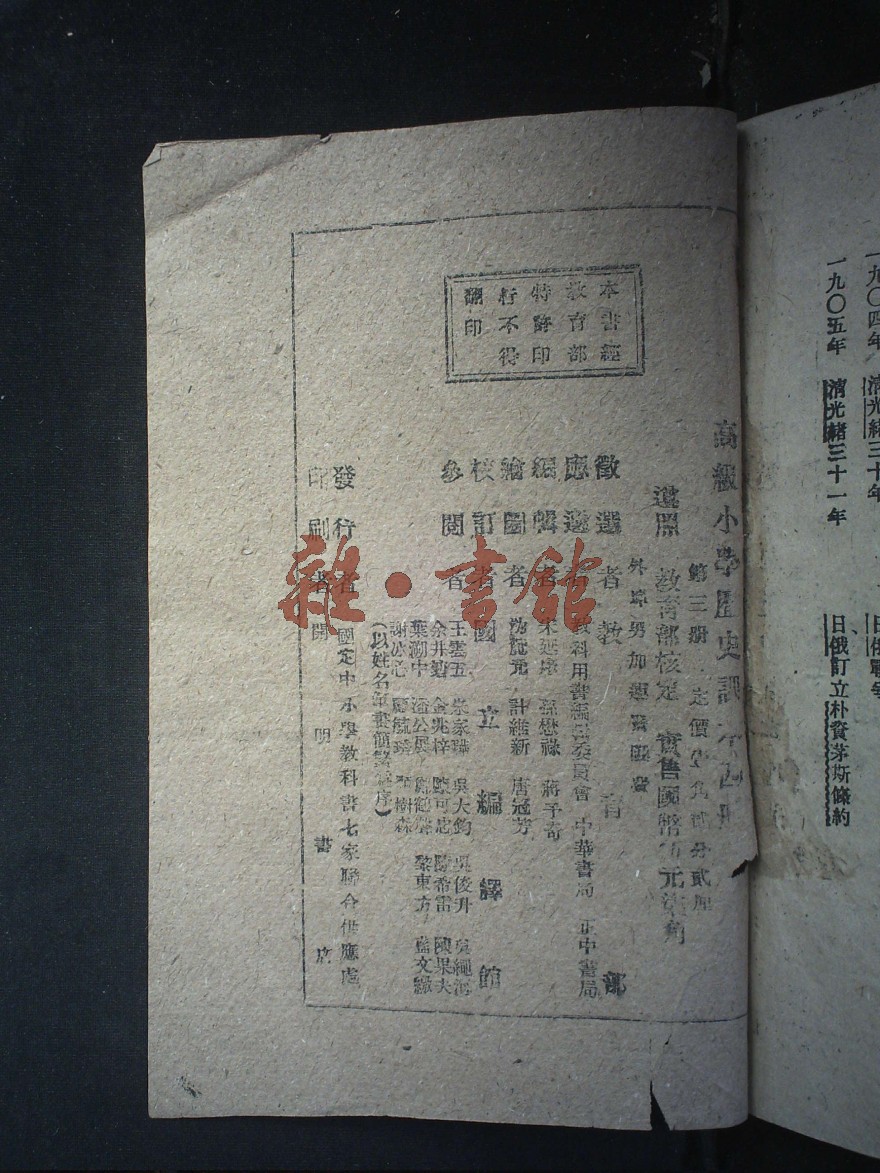 一九〇四年 清光緒三十年 日俄戰爭
一九〇五年 清光緒三十一年 日俄訂立朴資茅斯條約
高級小學歷史課本四冊
第三冊 定價
遵照 教育部核定 實售國幣 元 角
外埠另加運費匯費
徵選者 教育部
應選者 教科用書編輯委員會 中華書局 正中書局
編輯者 宋延庠 孫懋祿 蔣子奇
繪圖者 計維新 唐冠芳
校訂者 國立編譯館
參閱者 王雲五 朱家驊 吳大鈞 吳俊升 吳繩海
余井塘 金兆梓 陳可忠 陳希雷 陳果夫
葉溯中 潘公展 鄭鶴聲 黎東方 藍文徵
謝冰心 顧毓琇 顧樹森
(以姓名筆畫簡繁為序)
發行者 國定中小學教科書七家聯合供應處
印刷者 開明書店
本書經
教育部
特許印
行不得
翻印
雜·書館